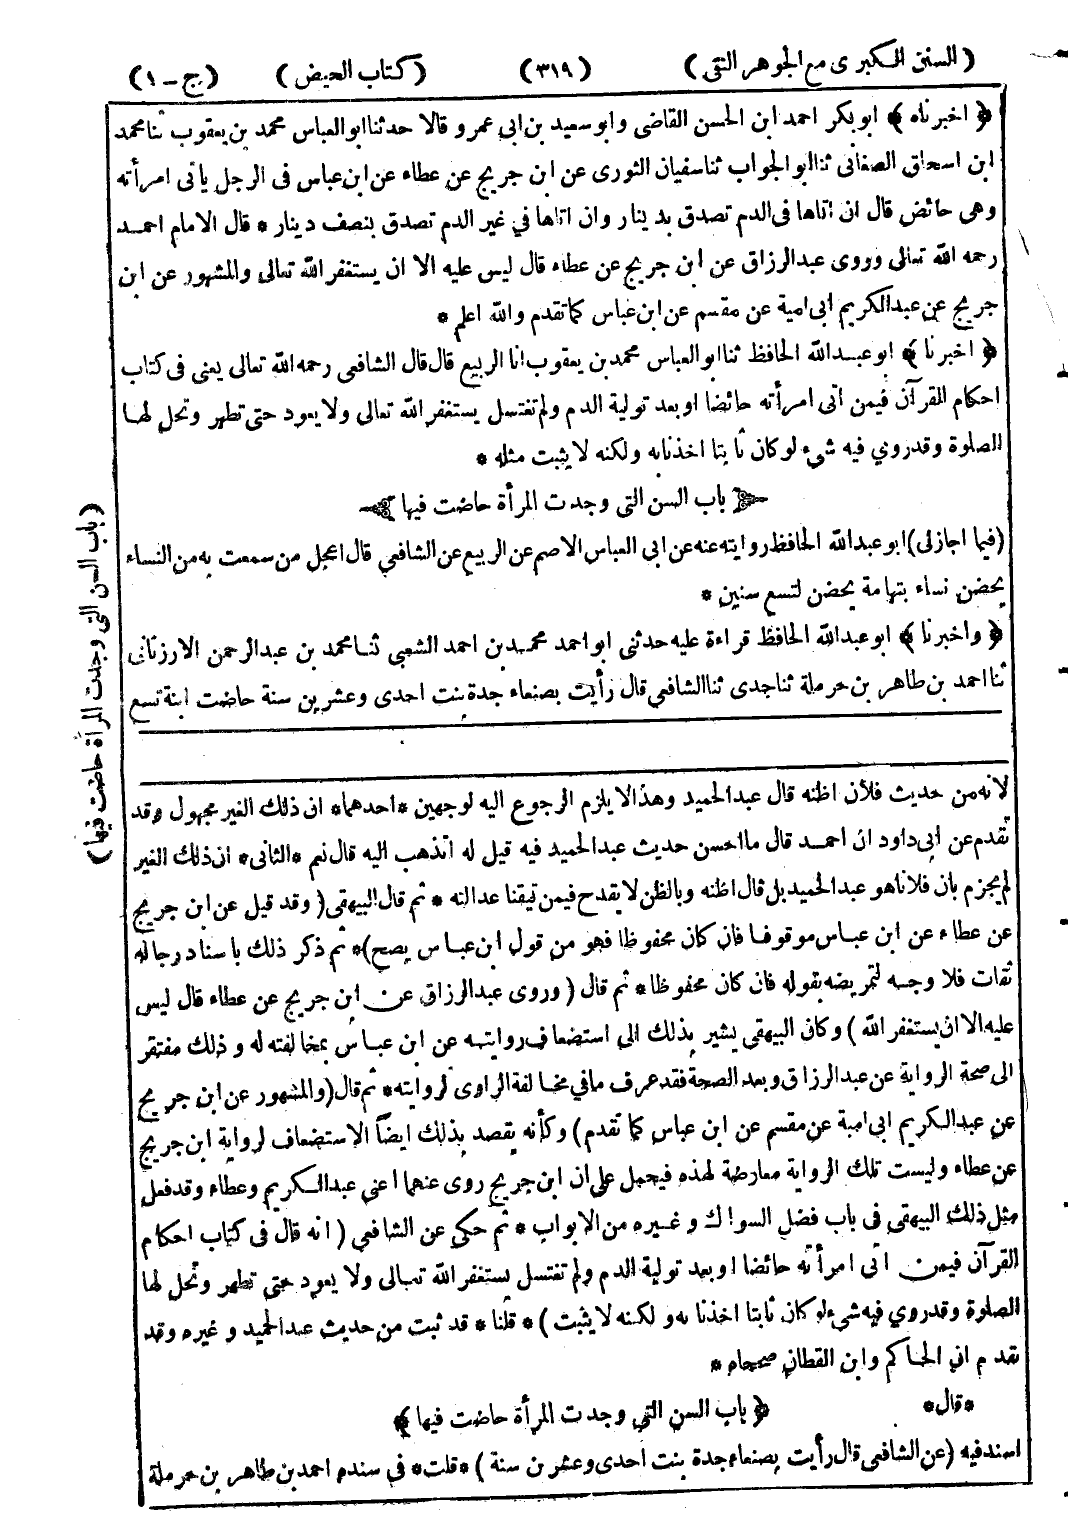 (السنن الكبرى مع الجوهر النقى) (٣١٩) (كتاب الحيض) (ج - ١)
﴿ اخبرناه ﴾ ابو بكر احمد ابن الحسن القاضى وابو سعيد بن ابى عمرو قالا حدثنا ابو العباس محمد بن يعقوب ثنا محمد
ابن اسحاق الصغانى ثنا ابو الجواب ثنا سفيان الثورى عن ابن جريج عن عطاء عن ابن عباس فى الرجل يأتى امرأته
وهى حائض قال ان اتاها فى الدم تصدق بدينار وان اتاها في غير الدم تصدق بنصف دينار * قال الامام احمد
رحمه الله تعالى وروى عبد الرزاق عن ابن جريج عن عطاء قال ليس عليه الا ان يستغفر الله تعالى والمشهور عن ابن
جريج عن عبد الكريم ابى امية عن مقسم عن ابن عباس كما تقدم والله اعلم *
﴿ اخبرنا ﴾ ابو عبد الله الحافظ ثنا ابو العباس محمد بن يعقوب انا الربيع قال قال الشافعى رحمه الله تعالى يعنى فى كتاب
احكام القرآن فيمن اتى امرأته حائضا او بعد تولية الدم ولم تغتسل يستغفر الله تعالى ولا يعود حتى تطهر وتحل لها
الصلوة وقد روي فيه شيء لو كان ثابتا اخذنا به ولكنه لا يثبت مثله *
باب السن التى وجدت المرأة حاضت فيها
(فيما اجازلى) ابو عبد الله الحافظ روايته عنه عن ابى العباس الاصم عن الربيع عن الشافعي قال اعجل من سمعت به من النساء
يحضن نساء بتهامة يحضن لتسع سنين *
﴿ واخبرنا ﴾ ابو عبد الله الحافظ قراءة عليه حدثنى ابو احمد محمد بن احمد الشعبي ثنا محمد بن عبد الرحمن الارزنانى
ثنا احمد بن طاهر بن حرملة ثنا جدى ثنا الشافعى قال رأيت بصنعاء جدة بنت احدى وعشرين سنة حاضت ابنة تسع
(باب السن التى وجدت المرأة حاضت فيها)
لانه من حديث فلان اظنه قال عبد الحميد وهذا لا يلزم الرجوع اليه لوجهين * احدهما * ان ذلك الغير مجهول وقد
تقدم عن ابى داود ان احمد قال ما احسن حديث عبد الحميد فيه قيل له اتذهب اليه قال نعم * الثانى * ان ذلك الغير
لم يجزم بان فلانا هو عبد الحميد بل قال اظنه وبالظن لا يقدح فيمن تيقنا عدالته * ثم قال البيهقى (وقد قيل عن ابن جريج
عن عطاء عن ابن عباس موقوفا فان كان محفوظا فهو من قول ابن عباس يصح) * ثم ذكر ذلك باسناد رجاله
ثقات فلا وجه لتمريضه بقوله فان كان محفوظا * ثم قال (وروى عبد الرزاق عن ابن جريج عن عطاء قال ليس
عليه الا ان يستغفر الله) وكان البيهقى يشير بذلك الى استضعاف روايته عن ابن عباس بمخالفته له وذلك مفتقر
الى صحة الرواية عن عبد الرزاق وبعد الصحة فقد عرف ما في مخالفة الراوى لروايته * ثم قال (والمشهور عن ابن جريج
عن عبد الكريم ابى امية عن مقسم عن ابن عباس كما تقدم) وكأنه يقصد بذلك ايضا الاستضعاف لرواية ابن جريج
عن عطاء وليست تلك الرواية معارضة لهذه فيحمل على ان ابن جريج روى عنهما اعنى عبد الكريم وعطاء وقد فعل
مثل ذلك البيهقى في باب فضل السواك وغيره من الابواب * ثم حكى عن الشافعي (انه قال فى كتاب احكام
القرآن فيمن اتى امرأته حائضا او بعد تولية الدم ولم تغتسل يستغفر الله تعالى ولا يعود حتى تطهر وتحل لها
الصلوة وقد روي فيه شيء لو كان ثابتا اخذنا به ولكنه لا يثبت) * قلنا * قد ثبت من حديث عبد الحميد وغيره وقد
تقدم ان الحاكم وابن القطان صححاه *
* قال * ﴿ باب السن التى وجدت المرأة حاضت فيها ﴾
اسند فيه (عن الشافعى قال رأيت بصنعاء جدة بنت احدى وعشرين سنة) * قلت * في سنده احمد بن طاهر بن حرملة